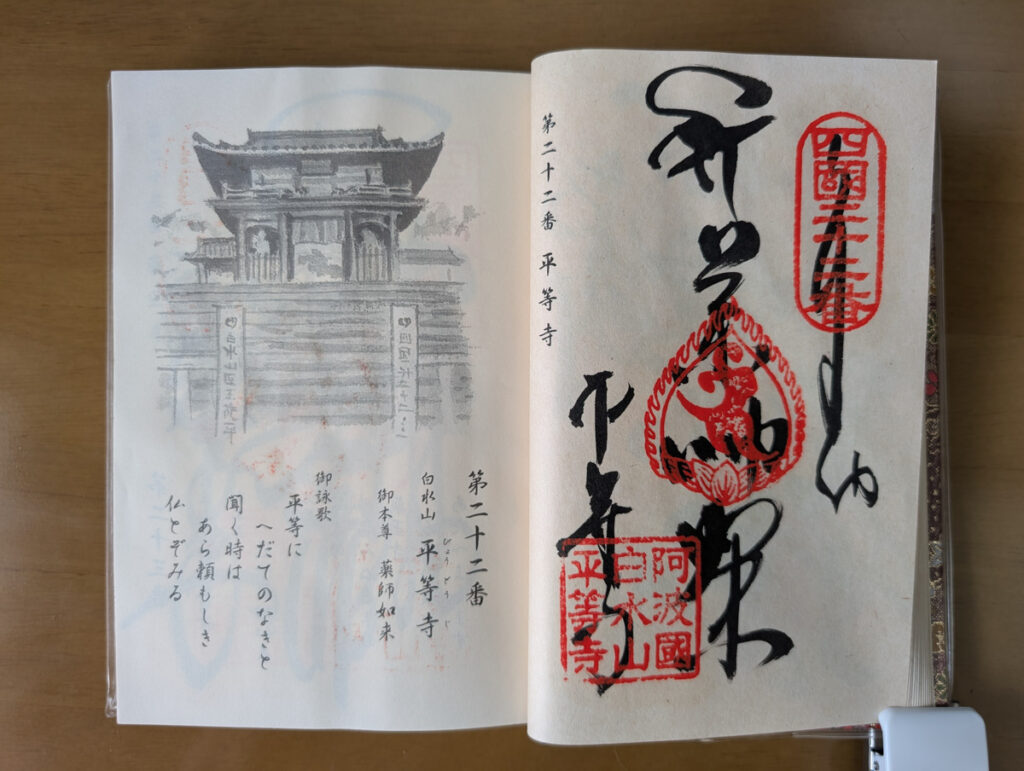 四國二十二番
奉納
平等寺
阿波國
白水山
平等寺
第二十二番 平等寺
第二十二番
白水山 平等寺
びょうどうじ
御本尊 薬師如来
御詠歌
平等に
へだてのなきと
聞く時は
あら頼もしき
仏とぞみる